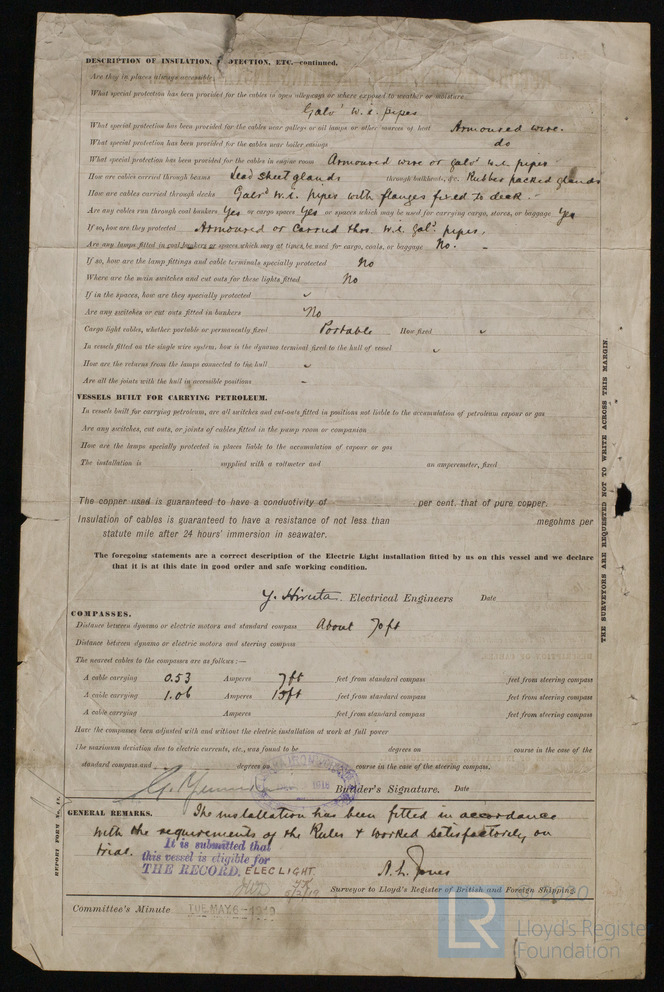 DESCRIPTION OF INSULATION, PROTECTION, ETC.—continued.
Are they in places always accessible
What special protection has been provided for the cables in open alleyways or where exposed to weather or moisture
Galvd W.I. pipes
What special protection has been provided for the cables near galleys or oil lamps or other sources of heat Armoured wire.
What special protection has been provided for the cables near boiler casings do
What special protection has been provided for the cables in engine room Armoured wire or galvd W.I. pipes
How are cables carried through beams Lead sheet glands through bulkheads, &c. Rubber packed glands
How are cables carried through decks Galvd W.I. pipes with flanges fixed to deck.
Are any cables run through coal bunkers Yes or cargo spaces Yes or spaces which may be used for carrying cargo, stores, or baggage Yes
If so, how are they protected Armoured or Carried thro. W.I. Galvd pipes.
Are any lamps fitted in coal bunkers or spaces which may at times be used for cargo, coals, or baggage No. -
If so, how are the lamp fittings and cable terminals specially protected No
Where are the main switches and cut outs for these lights fitted No
If in the spaces, how are they specially protected
Are any switches or cut outs fitted in bunkers No
Cargo light cables, whether portable or permanently fixed Portable How fixed
In vessels fitted on the single wire system, how is the dynamo terminal fixed to the hull of vessel
How are the returns from the lamps connected to the hull
Are all the joints with the hull in accessible positions -
VESSELS BUILT FOR CARRYING PETROLEUM.
In vessels built for carrying petroleum, are all switches and cut-outs fitted in positions not liable to the accumulation of petroleum vapour or gas
Are any switches, cut outs, or joints of cables fitted in the pump room or companion
How are the lamps specially protected in places liable to the accumulation of vapour or gas
The installation is supplied with a voltmeter and an amperemeter, fixed
The copper used is guaranteed to have a conductivity of per cent. that of pure copper.
Insulation of cables is guaranteed to have a resistance of not less than megohms per
statute mile after 24 hours' immersion in seawater.
The foregoing statements are a correct description of the Electric Light installation fitted by us on this vessel and we declare
that it is at this date in good order and safe working condition.
Y. Hirata. Electrical Engineers Date
COMPASSES.
Distance between dynamo or electric motors and standard compass About 70ft
Distance between dynamo or electric motors and steering compass
The nearest cables to the compasses are as follows:—
A cable carrying 0.53 Amperes 7ft feet from standard compass feet from steering compass
A cable carrying 1.06 Amperes 15ft feet from standard compass feet from steering compass
A cable carrying Amperes feet from standard compass feet from steering compass
Have the compasses been adjusted with and without the electric installation at work at full power
The maximum deviation due to electric currents, etc., was found to be degrees on course in the case of the
standard compass and degrees on course in the case of the steering compass.
Builder's Signature. Date
GENERAL REMARKS. The installation has been fitted in accordance
with the requirements of the Rules & worked satisfactorily on
trial.
It is submitted that
this vessel is eligible for
THE RECORD. ELEC LIGHT.
A. L. Jones
Surveyor to Lloyd's Register of British and Foreign Shipping.
Committee's Minute TUE. MAY. 6 - 1919
THE SURVEYORS ARE REQUESTED NOT TO WRITE ACROSS THIS MARGIN.
LR
Lloyd's Register
Foundation